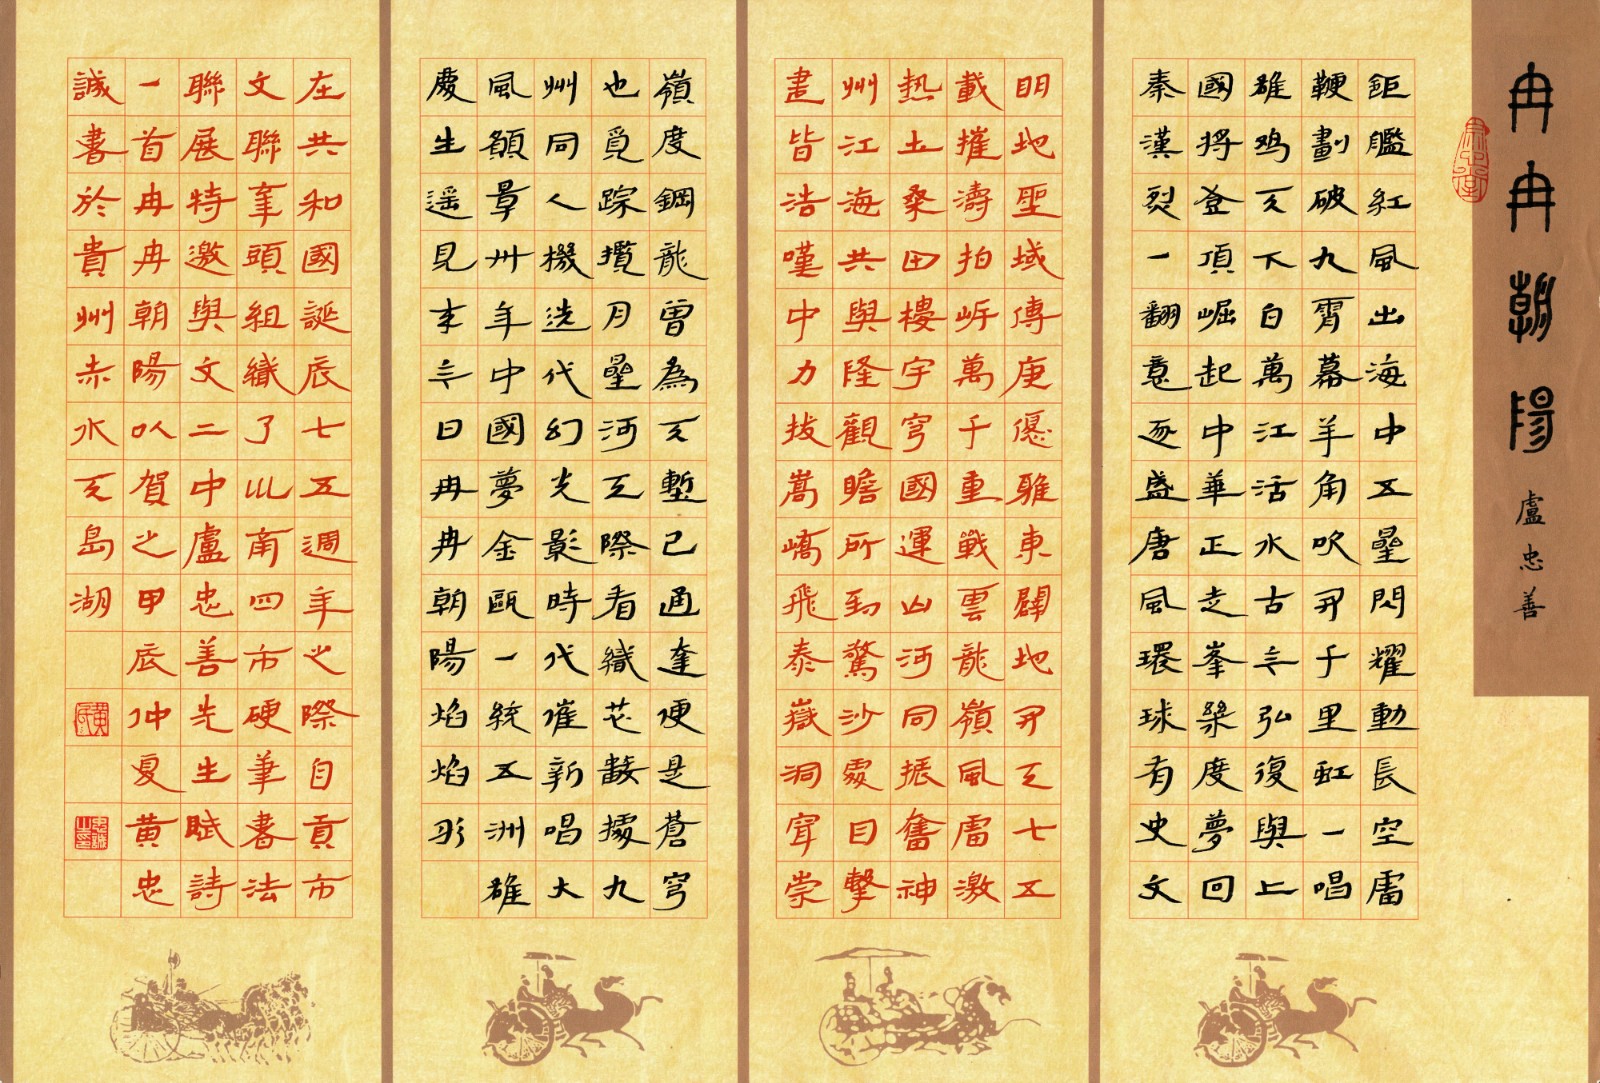 冉冉朝陽 盧忠善
鉅艦紅風出海中五曐閃耀動長空雷
鞭劃破九霄幕羊角吹開千里虹一唱
雄鸡天下白萬江活水古今弘復興上
國將登頂崛起中華正走峯度夢回
秦漢烈一翻意逐盛唐風環球有史文
明地聖域傳庚優雅東闢地開天七五
載摧濤拍岍萬千重戰雲龍嶺風雷激
熱土桑田樓宇穹國運山河同振奮神
州江海共興隆觀瞻所到驚沙處目擊
晝皆浩嘆中力拔嵩嶠飛泰嶽洞穿崇
嶺度鋼龍曾為天塹已通逵便是蒼穹
也覓踪攬月曐河天際看織花據九
州同人機迭代幻光影時代催新唱大
風願景卅年中國夢金甌一統五洲雄
慶生遥見来今日冉冉朝陽焰焰彤
在共和國誕辰七五週年之際自貢市
文聯牽頭組織了川南四市硬筆書法
聯展特邀與文二中盧忠善先生賦詩
一首冉冉朝陽以賀之甲辰仲夏黄忠
誠書於貴州赤水天島湖